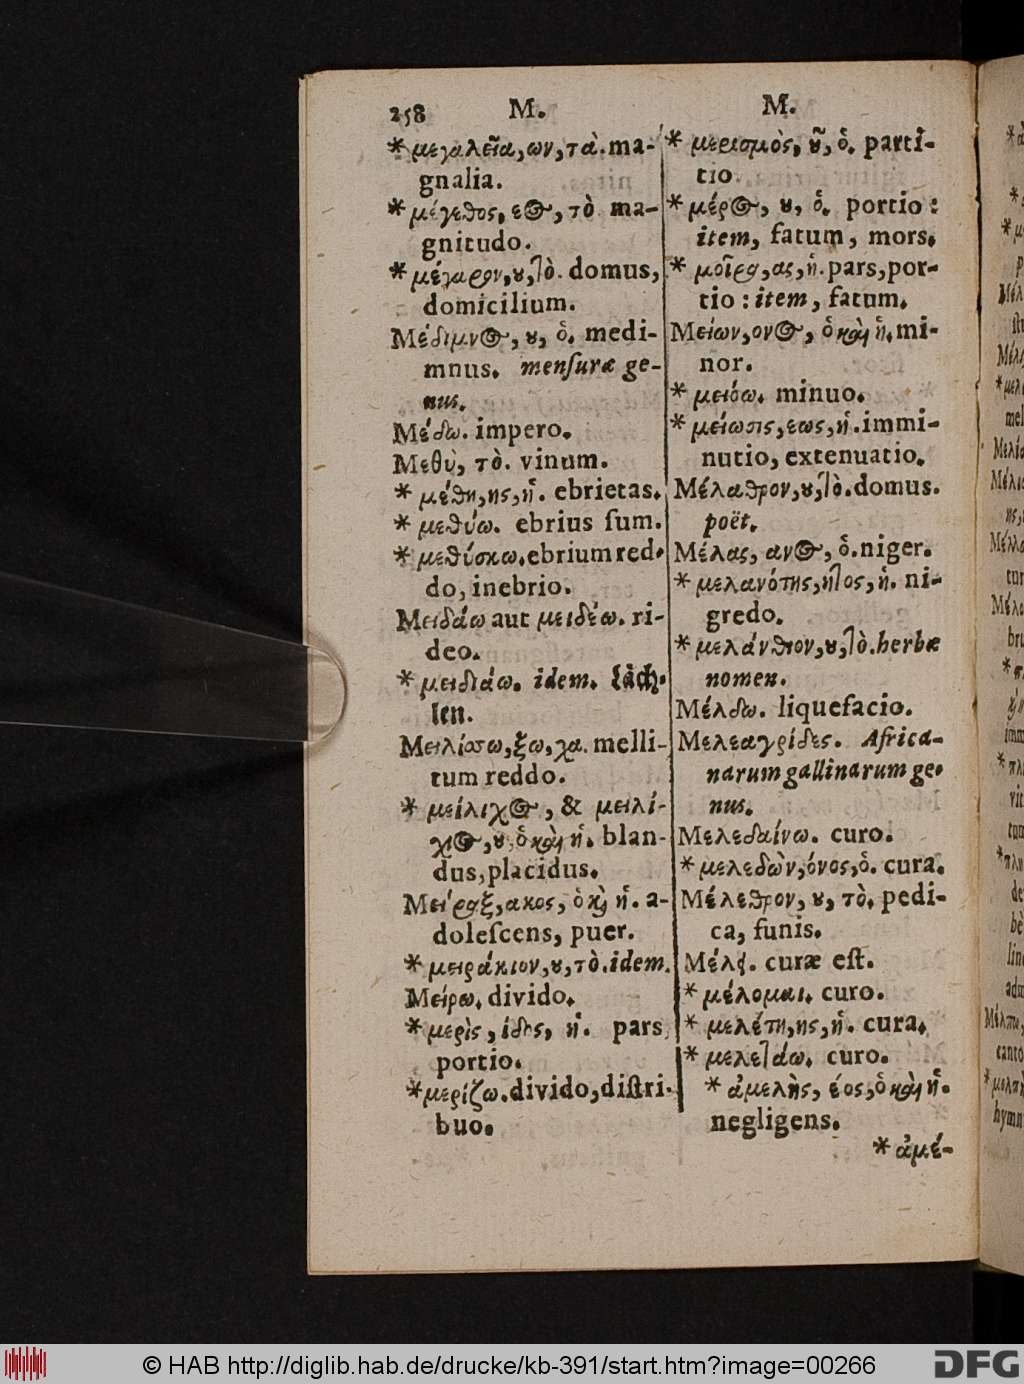 258 M. M.
* μεγαλεῖα, ων, τὰ. ma-
gnalia.
* μέγεθος, εος, τὸ ma-
gnitudo.
* μέγαρον, ου, τὸ. domus,
domicilium.
Μέδιμνος, ου, ὁ. medi-
mnus. menſuræ ge-
nus.
Μέδω. impero.
Μεθὺ, τὸ. vinum.
* μέθη, ης, ἡ. ebrietas.
* μεθύω. ebrius ſum.
* μεθύσκω. ebrium red-
do, inebrio.
Μειδάω aut μειδέω. ri-
deo.
* μειδιάω. idem. låch-
len.
Μειλίσσω, ξω, χα. melli-
tum reddo.
* μείλιχος, & μειλί-
χιος, ου, ὁ καὶ ἡ. blan-
dus, placidus.
Μείραξ, ακος, ὁ καὶ ἡ. a-
doleſcens, puer.
* μειράκιον, ου, τὸ. idem.
Μείρω. divido.
* μερὶς, ίδος, ἡ. pars
portio.
* μερίζω. divido, diſtri-
buo.
* μερισμὸς, οῦ, ὁ. parti-
tio
* μέρος, ου, ὁ. portio:
item, fatum, mors.
* μοῖρα, ας, ἡ. pars, por-
tio: item, fatum.
Μείων, ονος, ὁ καὶ ἡ. mi-
nor.
* μειόω. minuo.
* μείωσις, εως, ἡ. immi-
nutio, extenuatio.
Μέλαθρον, ου, τὸ. domus.
poët.
Μέλας, ανος, ὁ. niger.
* μελανότης, ητος, ἡ. ni-
gredo.
* μελάνθιον, ου, τὸ. herbæ
nomen.
Μέλδω. liquefacio.
Μελεαγρίδες. Africa-
narum gallinarum ge-
nus.
Μελεδαίνω. curo.
* μελεδὼν, όνος, ὁ. cura.
Μέλεθρον, ου, τὸ. pedi-
ca, funis.
Μέλει. curæ eſt.
* μέλομαι. curo.
* μελέτη, ης, ἡ. cura.
* μελετάω. curo.
* ἀμελὴς, έος, ὁ καὶ ἡ.
negligens.
* ἀμέ-
© HAB http://diglib.hab.de/drucke/kb-391/start.htm?image=00266
DFG